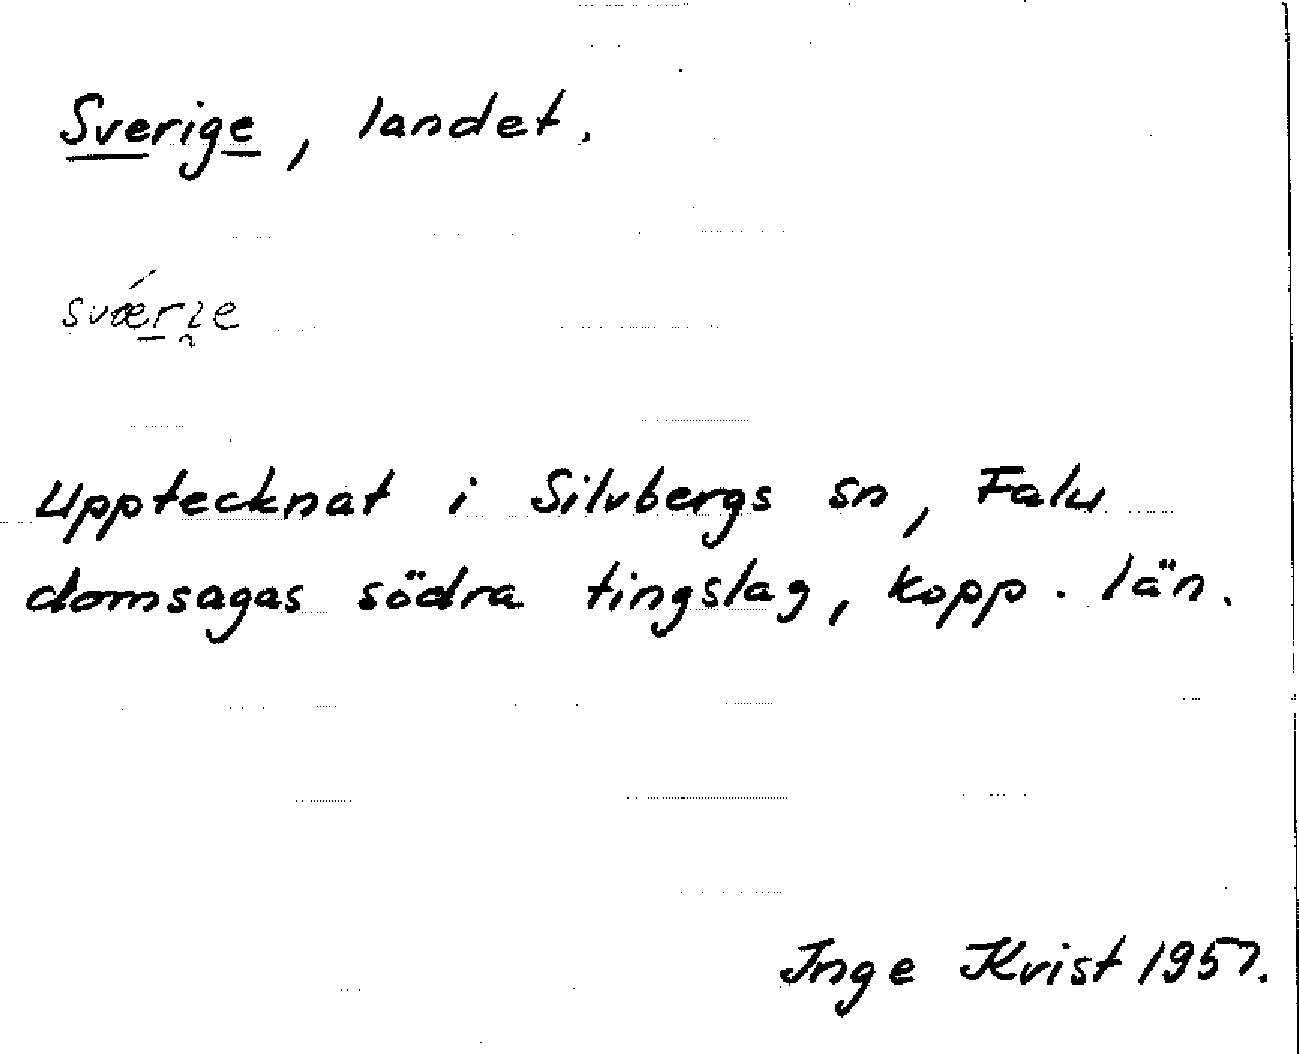 Sverige, landet.
svǽri̯e
Upptecknat i Silvbergs sn, Falu
domsagas södra tingslag, Kopp. län.
Inge Kvist 1957.